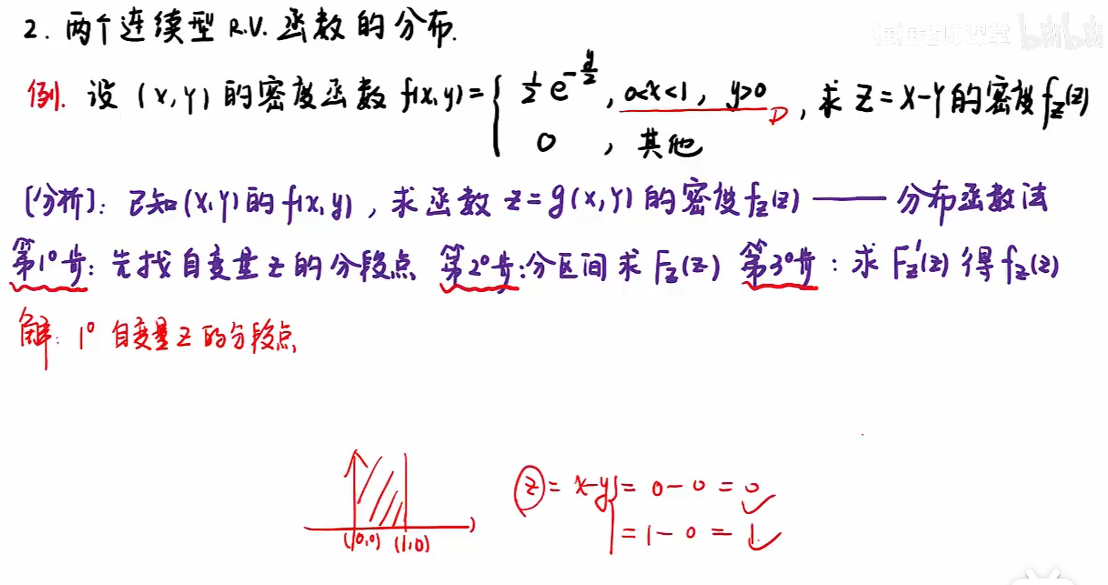 2. 两个连续型 R.V. 函数的分布.
例. 设 (X,Y) 的密度函数 f(x,y)={ 1/2 e^{-y/2}, 0<x<1, y>0 D, 求 Z=X-Y的密度f_Z(z)
0 , 其他
[分析]: 已知(X,Y)的f(x,y), 求函数 Z=g(X,Y)的密度f_Z(z) —— 分布函数法
第1°步: 先找自变量z的分段点 第2°步:分区间求 F_Z(z) 第3°步: 求 F_Z'(z) 得 f_Z(z)
解: 1° 自变量z的分段点
z = x-y = 0-0 = 0 ✓
= 1-0 = 1 ✓
(0,0) (1,0)